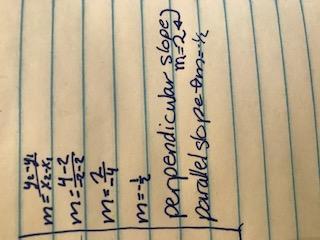 m = y₂-y₁ / x₂-x₁
m = 4-2 / -2-2
m = 2 / -4
m = -1/2
perpendicular slope
m=2
parallel slope m=-1/2